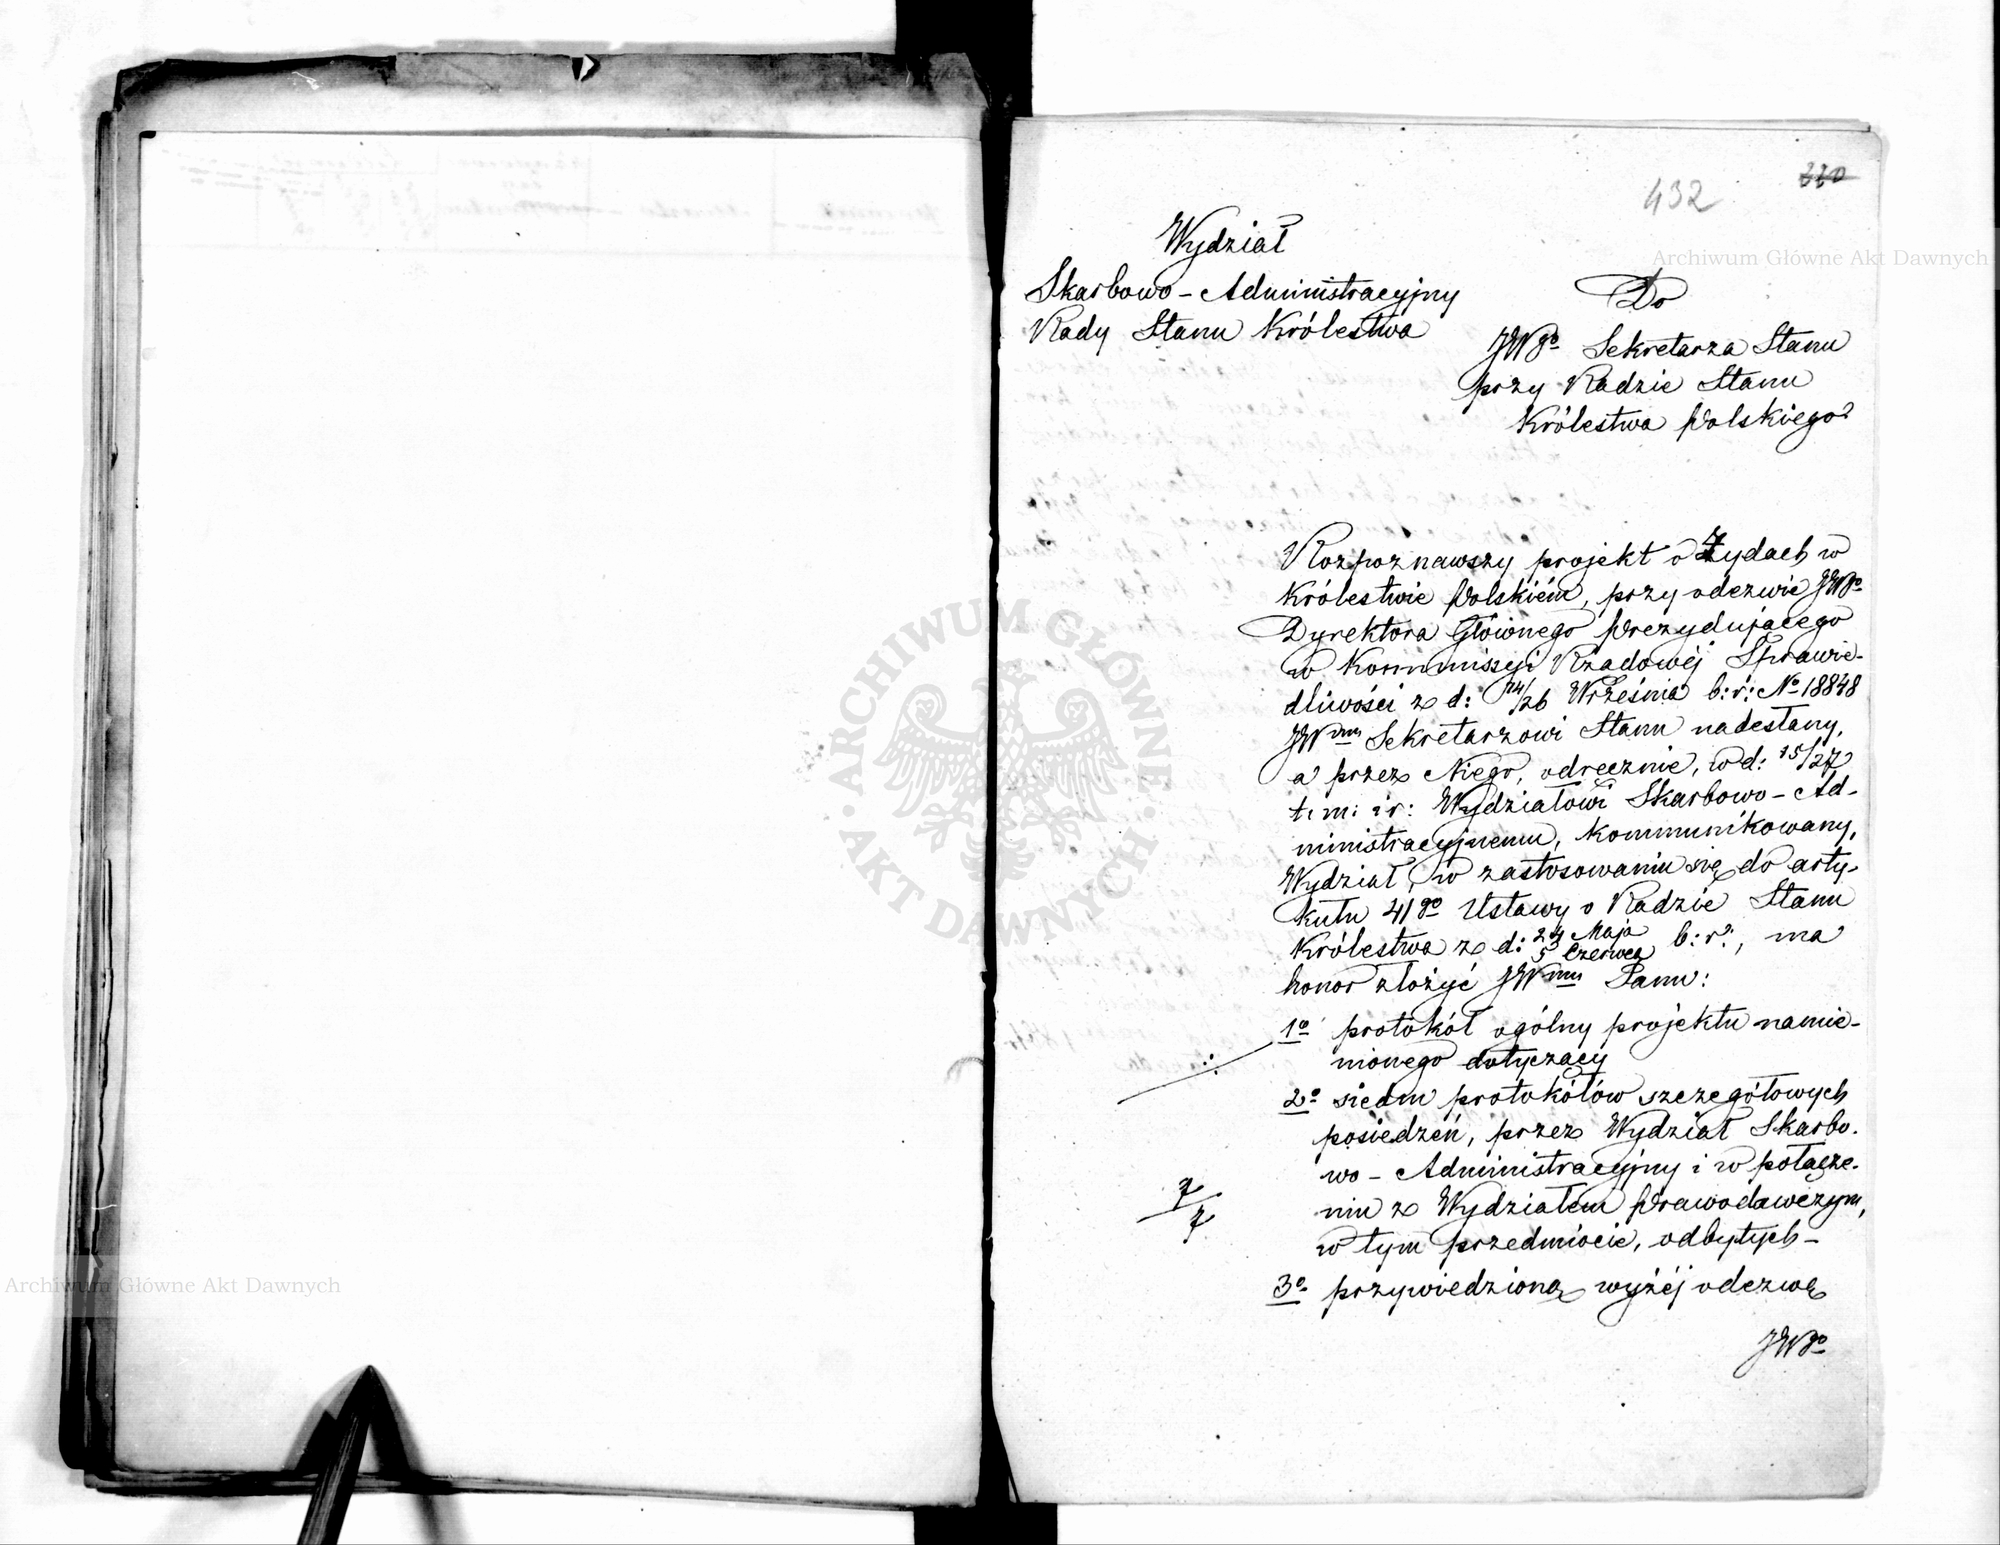 432
330
Wydział
Skarbowo-Administracyjny
Rady Stanu Królestwa
Do
JWgo Sekretarza Stanu
przy Radzie Stanu
Królestwa Polskiego
Rozpoznawszy projekt o Żydach w
Królestwie Polskiém, przy odezwie JWgo
Dyrektora Głównego Prezydującego
w Kommissyi Rządowéj Sprawie-
dliwości z d: 14/26 Września b: r: No 18848
JWmu Sekretarzowi Stanu nadesłany,
a przez Niego, odręcznie, w d: 15/27
t: m: i r: Wydziałowi Skarbowo-Ad-
ministracyjnemu, kommunikowany,
Wydział, w zastosowaniu się do arty-
kułu 41go Ustawy o Radzie Stanu
Królestwa z d: 24 Maja / 5 Czerwca b: r:, ma
honor złożyć JWmu Panu:
1o protokół ogólny projektu namie-
nionego dotyczący
2o siedm protokółów szczegółowych
posiedzeń, przez Wydział Skarbo-
wo-Administracyjny i w połącze-
niu z Wydziałem Prawodawczym,
w tym przedmiocie, odbytych-
7/7
3o przywiedzioną wyżéj odezwę
JWgo
Archiwum Główne Akt Dawnych
Archiwum Główne Akt Dawnych
ARCHIWUM GŁÓWNE · AKT DAWNYCH ·